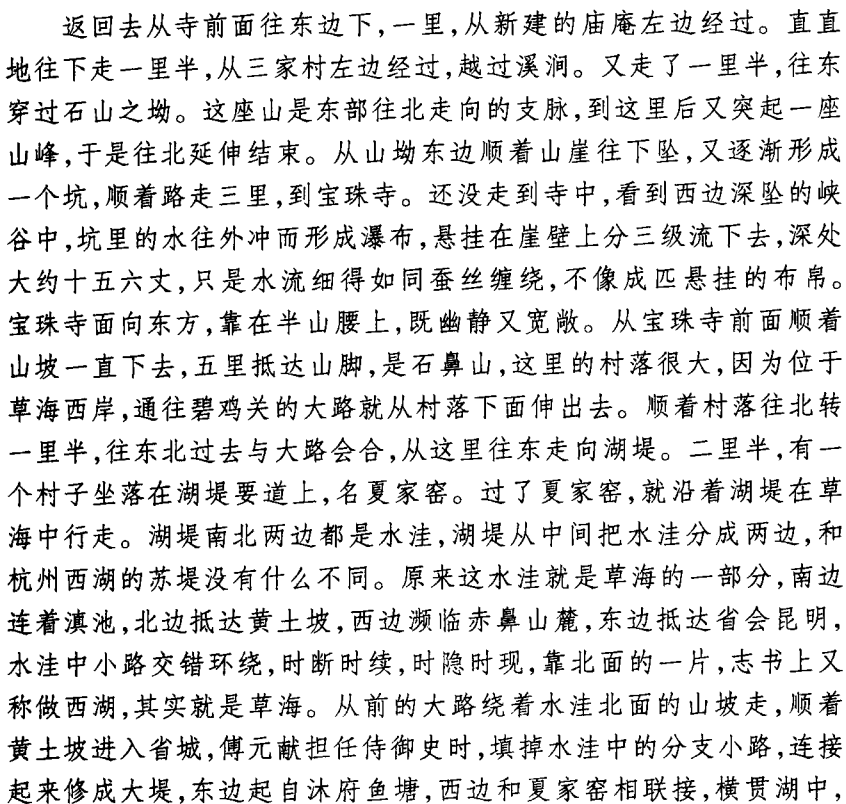 返回去从寺前面往东边下,一里,从新建的庙庵左边经过。直直
地往下走一里半,从三家村左边经过,越过溪涧。又走了一里半,往东
穿过石山之坳。这座山是东部往北走向的支脉,到这里后又突起一座
山峰,于是往北延伸结束。从山坳东边顺着山崖往下坠,又逐渐形成
一个坑,顺着路走三里,到宝珠寺。还没走到寺中,看到西边深坠的峡
谷中,坑里的水往外冲而形成瀑布,悬挂在崖壁上分三级流下去,深处
大约十五六丈,只是水流细得如同蚕丝缠绕,不像成匹悬挂的布帛。
宝珠寺面向东方,靠在半山腰上,既幽静又宽敞。从宝珠寺前面顺着
山坡一直下去,五里抵达山脚,是石鼻山,这里的村落很大,因为位于
草海西岸,通往碧鸡关的大路就从村落下面伸出去。顺着村落往北转
一里半,往东北过去与大路会合,从这里往东走向湖堤。二里半,有一
个村子坐落在湖堤要道上,名夏家窑。过了夏家窑,就沿着湖堤在草
海中行走。湖堤南北两边都是水洼,湖堤从中间把水洼分成两边,和
杭州西湖的苏堤没有什么不同。原来这水洼就是草海的一部分,南边
连着滇池,北边抵达黄土坡,西边濒临赤鼻山麓,东边抵达省会昆明,
水洼中小路交错环绕,时断时续,时隐时现,靠北面的一片,志书上又
称做西湖,其实就是草海。从前的大路绕着水洼北面的山坡走,顺着
黄土坡进入省城,傅元献担任侍御史时,填掉水洼中的分支小路,连接
起来修成大堤,东边起自沐府鱼塘,西边和夏家窑相联接,横贯湖中,